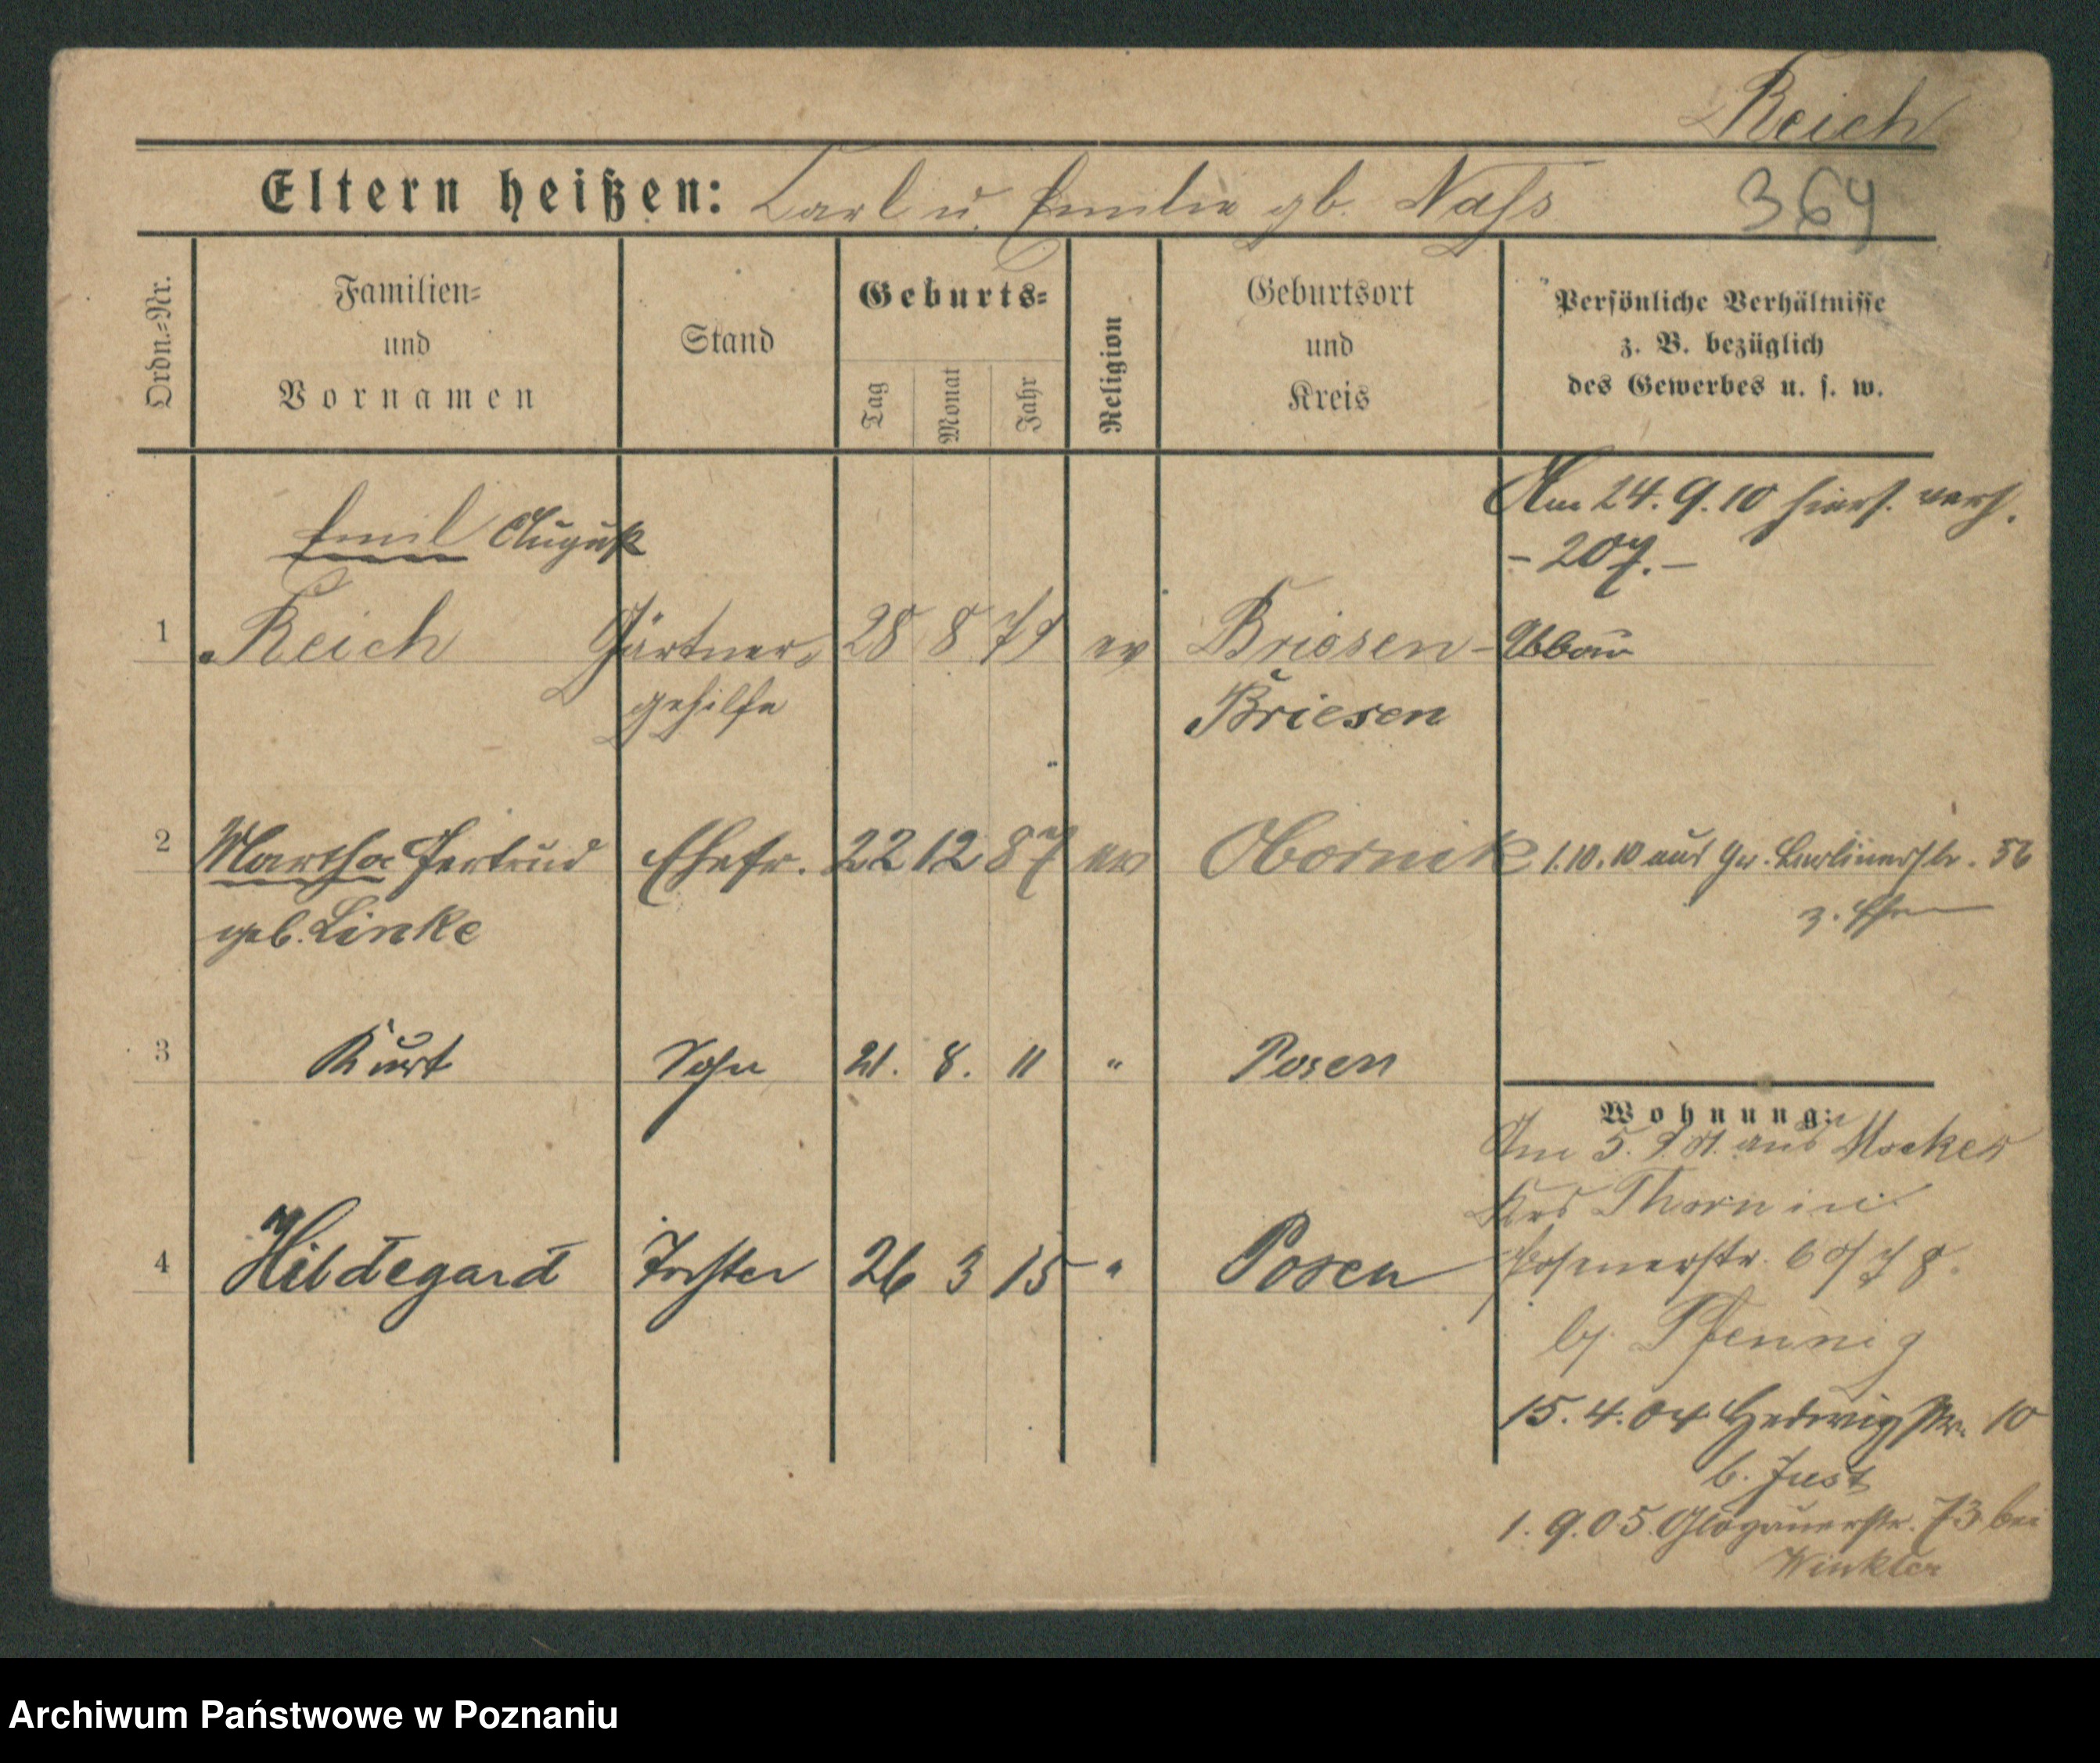 Reich
Eltern heißen: Carl u. Emilie gb. Nass 364
Ordn.=Nr.
Familien=
und
Vornamen
Stand
Geburts=
Tag
Monat
Jahr
Religion
Geburtsort
und
Kreis
Persönliche Verhältnisse
z. B. bezüglich
des Gewerbes u. s. w.
Am 24.9.10 hiers. verh.
- 207. -
Emil August
1 Reich Gärtner- 28 8 79 ev Briesen - Abbau
gehilfe Briesen
2 Martha Gertrud Ehefr. 22 12 87 ev Obornik 1.10.10 aus Gr. Berlinerstr. 56
geb. Linke z. Ehe
3 Kurt Sohn 21. 8. 11 " Posen
4 Hildegard Tochter 26 3 15 " Posen
Wohnung:
Am 5. 9. 01. aus Mocker
Krs Thorn in
Posenerstr.
bj Pfennig
15.4.04 Hedwigstr. 10
b. Just
1.9.05. Glogauerstr. 73 bei
Winkler
Archiwum Państwowe w Poznaniu